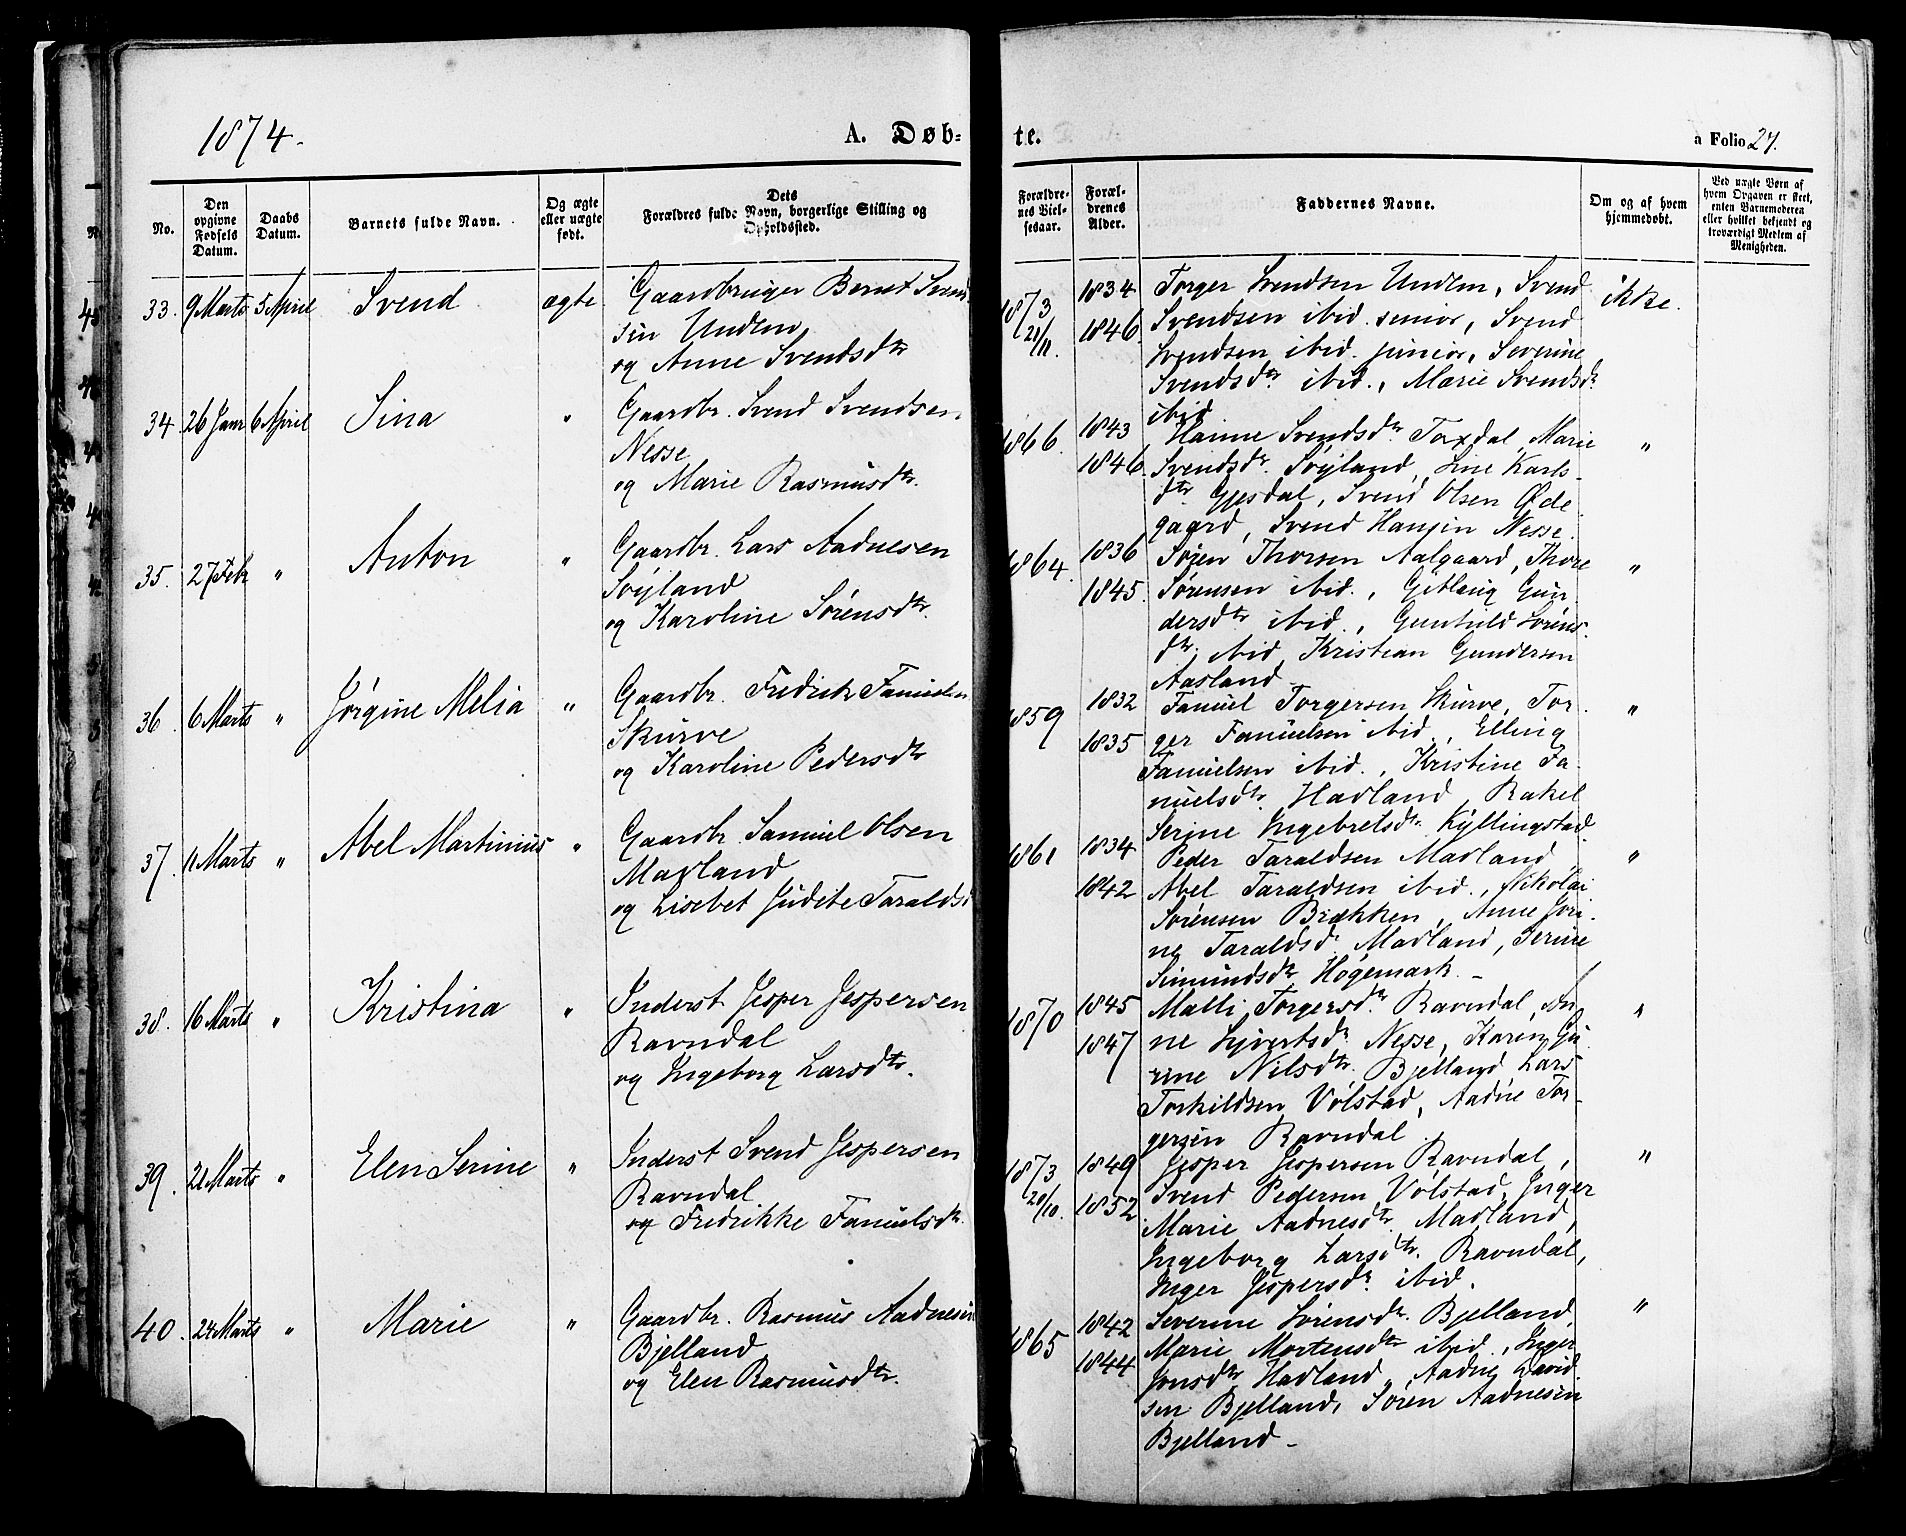 1874.
A. Døb-
te.
a Folio 27.
No.
Den opgivne Fødsels Datum.
Daabs Datum.
Barnets fulde Navn.
Og ægte eller uægte født.
Dets Forældres fulde Navn, borgerlige Stilling og Opholdssted.
Forældrenes Vielsesaar.
Forældrenes Alder.
Faddernes Navne.
Om og af hvem hjemmedøbt.
Ved uægte Børn af hvem Opgaven er skeet, enten Barnemoderen eller hvilket bekjendt og troværdigt Medlem af Menigheden.
33. 9 Marts 5 April Svend ægte
Gaardbruger Bernt Svend-
sen Undem
og Anne Svendsdtr
1873 21/11. 1834 1846.
Torger Svendsen Undem, Svend
Svendsen ibid. senior, Svend
Svendsen ibid. junior, Severine
Svendsdtr. ibid., Marie Svendsdr
ibid.
ikke.
34. 26 Janr 6 April Sina "
Gaardbr. Svend Svendsen
Nesse
og Marie Rasmusdtr.
1866. 1843 1846.
Hanne Svendsdtr. Torsdal, Marie
Svendsdr. Søyland, Line Karls-
dtr Gjesdal, Svend Olsen Øde
gaard, Svend Hansen Nesse.
"
35. 27 Feb " Anton "
Gaardbr. Lars Aadnesen
Søyland
og Karoline Sørensdtr.
1864. 1836 1845.
Søren Thorsen Aalgaard, Thore
Sørensen ibid., Gitlaug Gun
dersdtr ibid., Gunhild Sørens-
dtr. ibid, Kristian Gundersen
Aasland
"
36. 6 Marts " Jørgine Melia "
Gaardbr. Fredrik Fanuelsen
Skurve
og Karoline Pedersdtr
1859 1832 1835
Fanuel Torgersen Skurve, Tor-
ger Fanuelsen ibid., Elling
Fanuelsen ibid., Kristine Fa-
nuelsdtr. Hadland, Rakel
Serine Ingebretsdtr. Kyllingstad
"
37. 11 Marts " Abel Martinius "
Gaardbr. Samuel Olsen
Madland
og Lisebet Judite Taraldsd
1861 1834 1842
Peder Taraldsen Madland
Abel Taraldsen ibid., Nikolai
Sørensen Brækken, Anne Jori-
ne Taraldsdr. Madland, Serine
Simundsdtr Høgemark. -
"
38. 16 Marts " Kristina "
Inderst Jesper Jespersen
Ravndal
og Ingeborg Larsdtr.
1870 1845 1847
Malli Torgersdtr Ravndal, An-
ne Sjvertsdr. Nesse, Karen Gu
rine Nilsdtr. Bjelland, Lars
Torkildsen Vølstad, Aadne Tor-
gersen Ravndal
"
39. 21 Marts " Elen Serine "
Inderst Svend Jespersen
Ravndal
og Fredrikke Fanuelsdr.
1873 20/10. 1849 1852
Jesper Jespersen Ravndal,
Svend Pedersen Vølstad, Inger
Marie Aadnesdtr. Madland,
Ingeborg Larsdtr. Ravndal,
Inger Jespersdr. ibid.
"
40. 24 Marts " Marie "
Gaardbr. Rasmus Aadnesen
Bjelland
og Elen Rasmusdtr.
1865 1842 1844
Severine Sørensdr. Bjelland,
Marie Mortensdtr ibid., Inger
Jonsdtr Hadland, Aadne David
sen Bjelland, Søren Aadnesen
Bjelland -
"